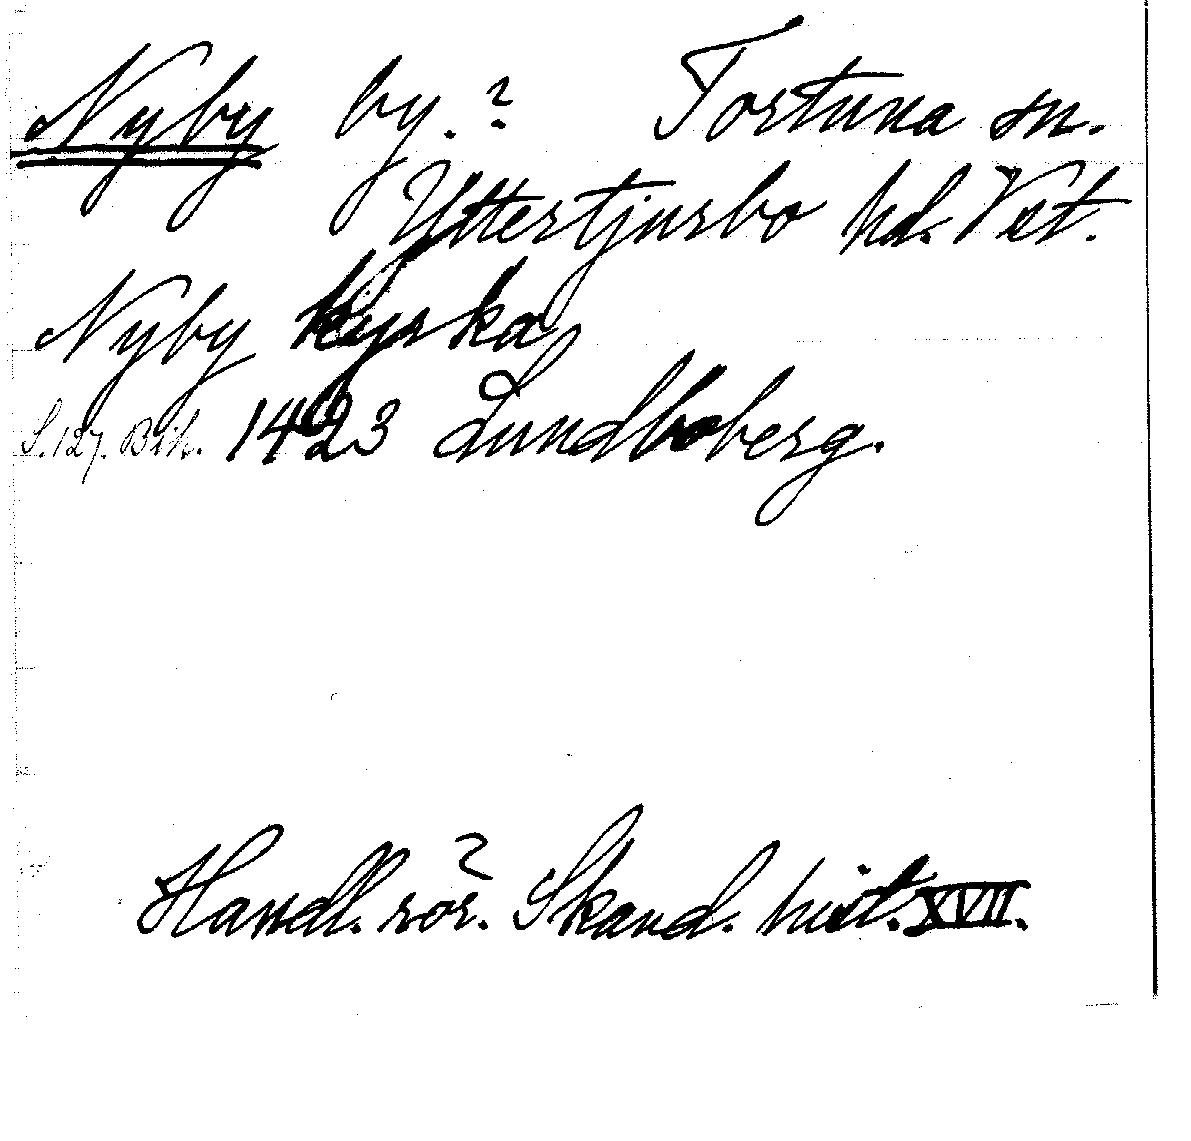 Nyby by.? Tortuna sn.
Yttertjurbo hd. Vst.
Nyby kyrka
S. 127. Bih. 1423 Lundboberg.
Handl. rör. Skand. hist. XVII.